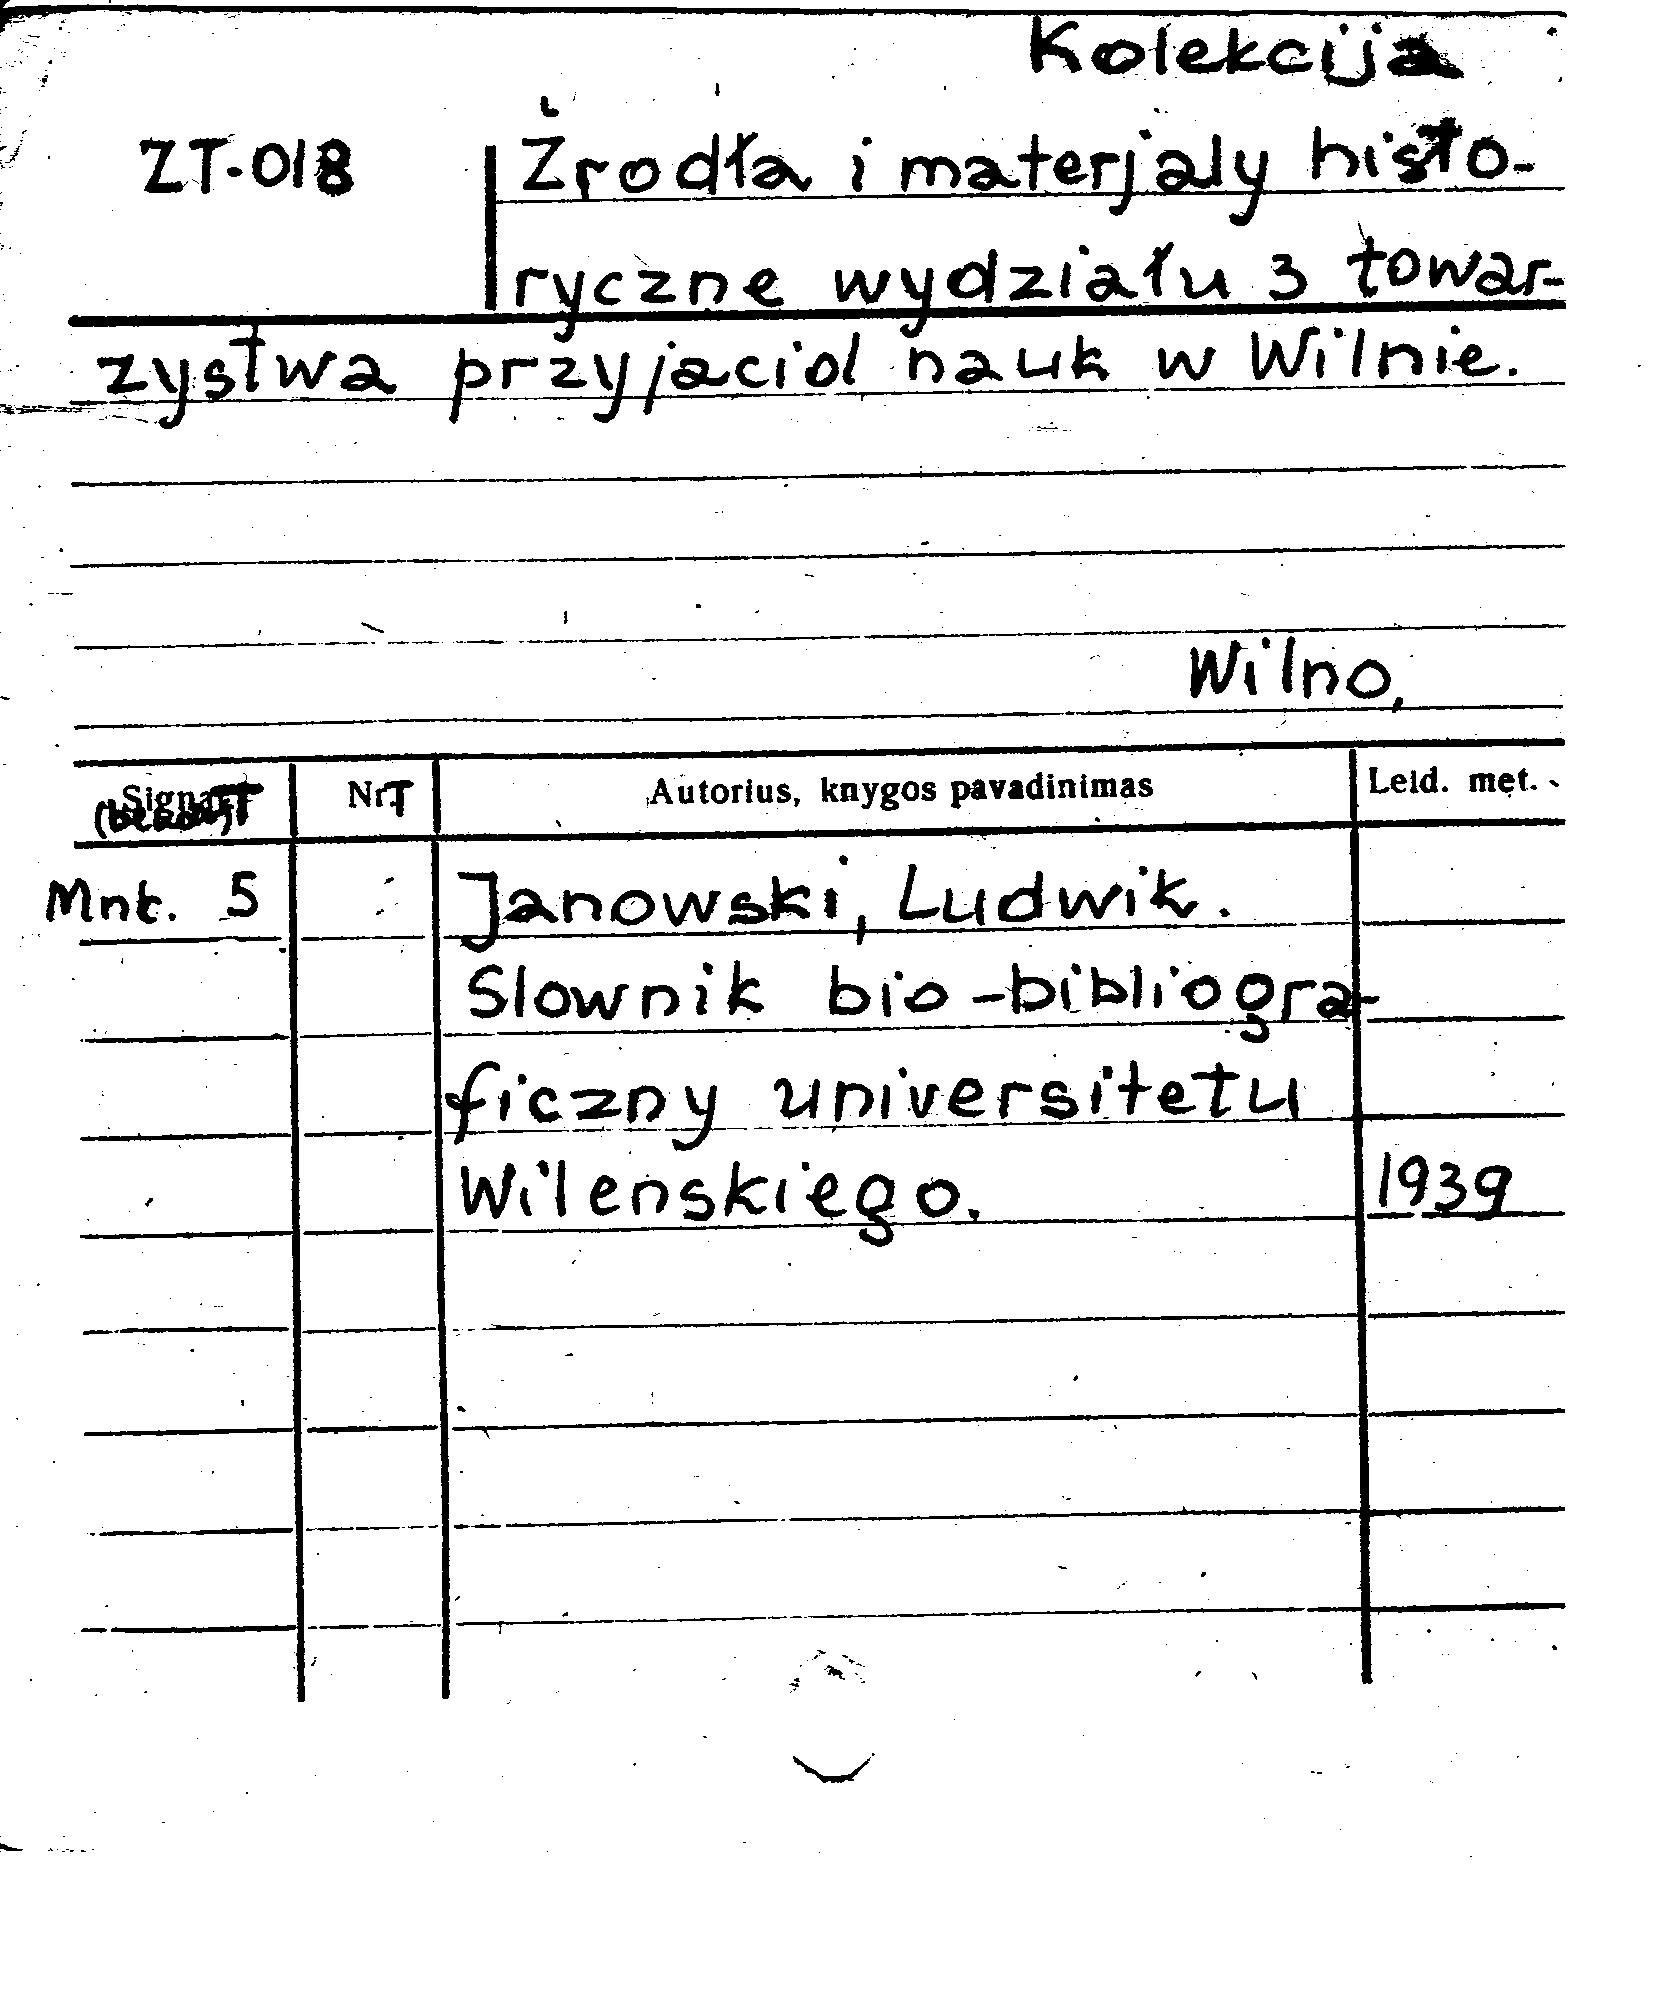 Kolekcija
ZT-018
Żrodła i materjaly histo-
ryczne wydziału 3 towar-
zystwa przyjaciol nauk w Wilnie.
Wilno,
Nr. Autorius, knygos pavadinimas Leid. met.
Mnt. 5 Janowski, Ludwik.
Slownik bio-bibliogra-
ficzny universitetu
Wilenskiego. 1939